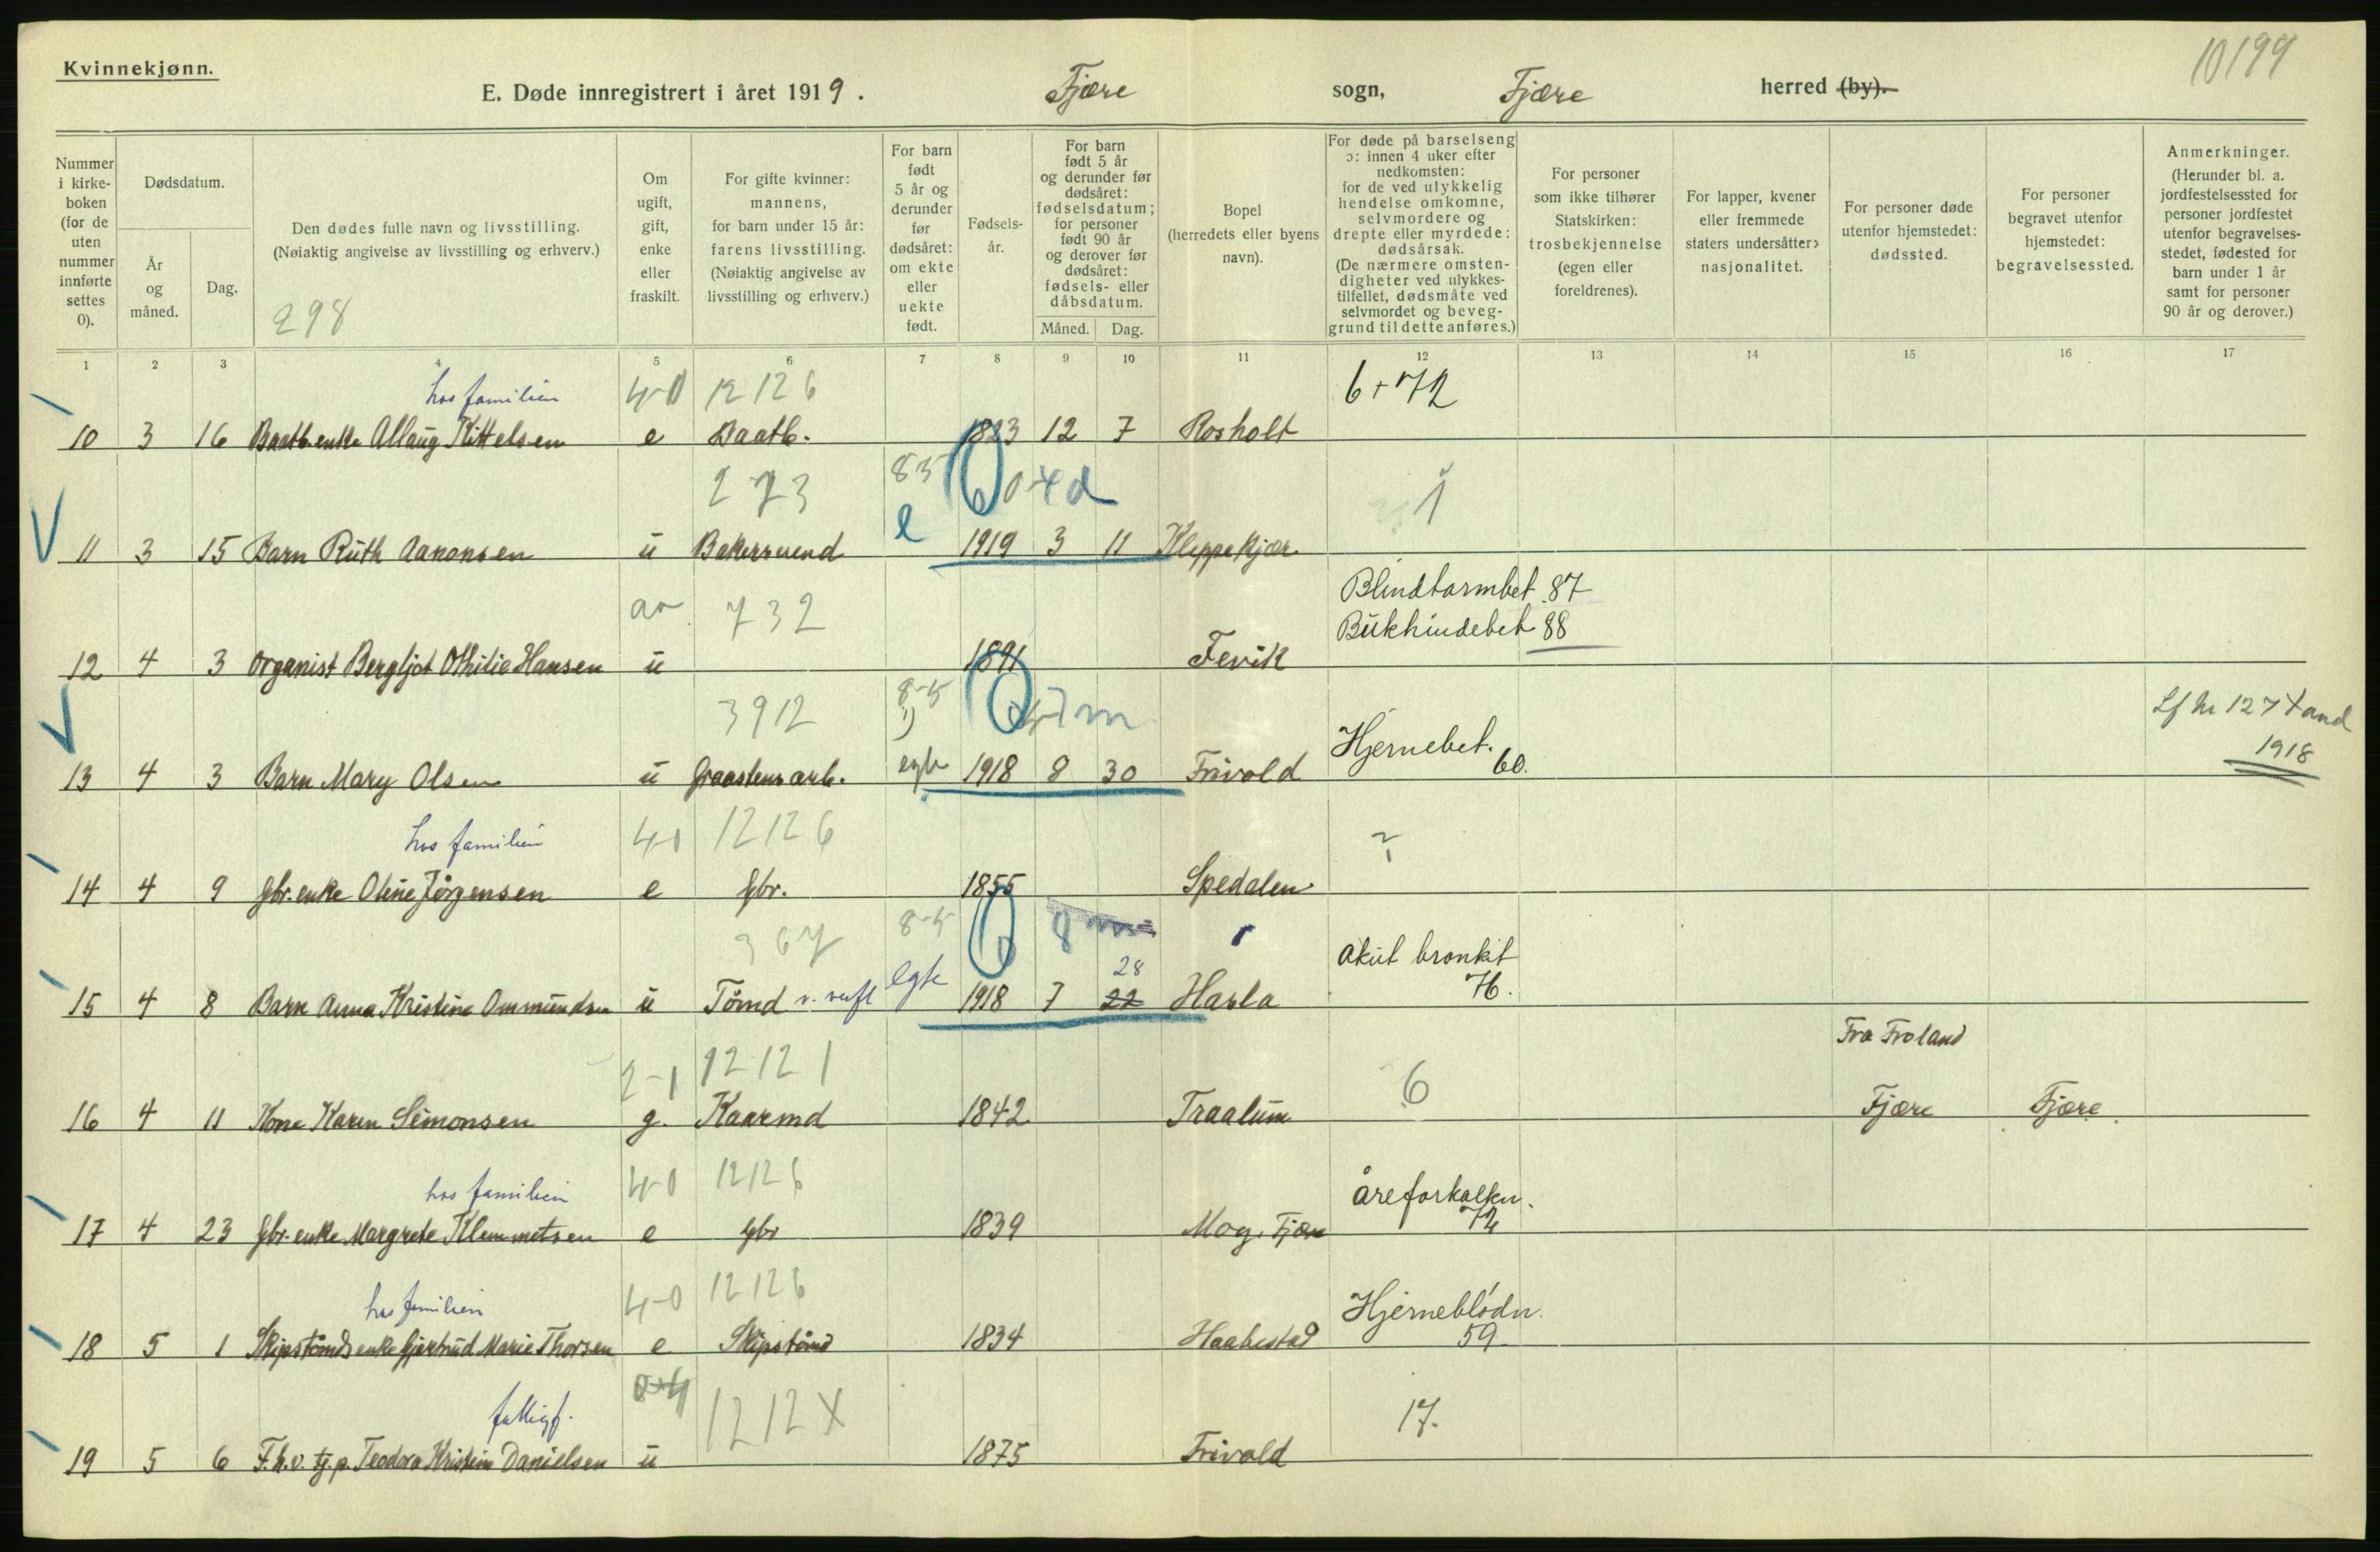 Kvinnekjønn.
10199
E. Døde innregistrert i året 1919. Fjære sogn, Fjære herred (by).
Nummer i kirke- boken (for de uten nummer innførte settes 0).
Dødsdatum.
År og måned.
Dag.
Den dødes fulle navn og livsstilling.
(Nøiaktig angivelse av livsstilling og erhverv.)
298
Om ugift, gift, enke eller fraskilt.
For gifte kvinner: mannens, for barn under 15 år: farens livsstilling. (Nøiaktig angivelse av livsstilling og erhverv.)
For barn født 5 år og derunder før dødsåret: om ekte eller uekte født.
Fødsels- år.
For barn født 5 år og derunder før dødsåret: fødselsdatum; for personer født 90 år og derover før dødsåret: fødsels- eller dåbsdatum.
Måned. Dag.
Bopel (herredets eller byens navn).
For døde på barselseng ɔ: innen 4 uker efter nedkomsten: for de ved ulykkelig hendelse omkomne, selvmordere og drepte eller myrdede: dødsårsak. (De nærmere omsten- digheter ved ulykkes- tilfellet, dødsmåte ved selvmordet og beveg- grund til dette anføres.)
For personer som ikke tilhører Statskirken: trosbekjennelse (egen eller foreldrenes).
For lapper, kvener eller fremmede staters undersåtter: nasjonalitet.
For personer døde utenfor hjemstedet: dødssted.
For personer begravet utenfor hjemstedet: begravelsessted.
Anmerkninger. (Herunder bl. a. jordfestelsessted for personer jordfestet utenfor begravelses- stedet, fødested for barn under 1 år samt for personer 90 år og derover.)
1 2 3 4 5 6 7 8 9 10 11 12 13 14 15 16 17
hos familien 4-0 12126 6+72
10 3 16 Baatb.enke Allaug Kittelsen e Baatb. 1823 12 7 Rosholt
273 85 0 4d
11 3 15 Barn Ruth Aanonsen u Bakersvend e 1919 3 11 Kleppekjær
732 Blindtarmbet. 87
Bukhindebet 88
12 4 3 Organist Bergljot Othilie Hansen u 1891 Fevik
3912 8-5 7m
Hjernebet. 60.
13 4 3 Barn Mary Olsen u Graastensarb. egte 1918 8 30 Frivold 1918
hos familien 4-0 12126 ?
14 4 9 Gbr.enke Oline Jørgensen e Gbr. 1855 Spedalen
367 8-5 8m akut bronkit
28
15 4 8 Barn Anna Kristine Ommundsen u Tømd v. verft egte 1918 7 22 Hasla 76.
Fra Froland
2-1 12121 6
16 4 11 Kone Karen Simonsen g. Kaarmd 1842 Traalum Fjære Fjære.
hos familien 4-0 12126 åreforkalkn. 72
17 4 23 Gbr.enke Margrete Klemmetsen e Gbr 1839 Moy, Fjære
hos familien 4-0 12126 Hjerneblødn. 59.
18 5 1 Skipstømdsenke Gjertrud Marie Thorsen e Skipstømd 1834 Haabestad
fattigf. 1212X 17.
19 5 6 F.h.v. tj.p. Teodora Kristine Danielsen u 1875 Frivold